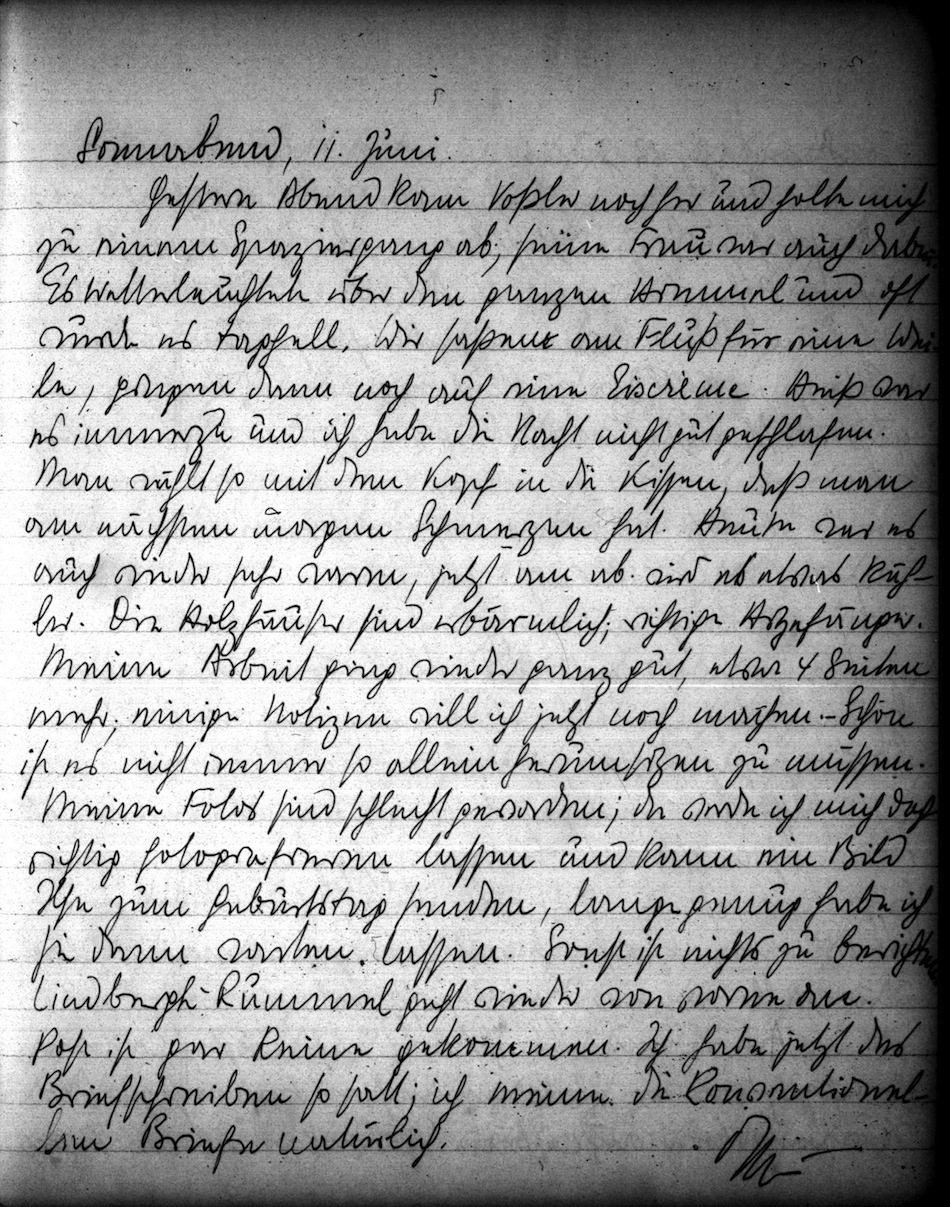 Sonnabend, 11. Juni.
Gestern Abend kam Voßler noch her und holte mich
zu einem Spaziergang ab; seine Frau war auch dabei.
Es wetterleuchtete über den ganzen Himmel und oft
wurde es taghell. Wir saßen am Fluß für eine Wei-
le, gingen dann noch auf eine Eiscrème. Heiß war
es immerzu und ich habe die Nacht nicht gut geschlafen.
Man wühlt so mit dem Kopf in die Kissen, daß man
am nächsten morgen Schmerzen hat. Heute war es
auch wieder sehr warm, jetzt am ab. wird es etwas küh-
ler. Die Holzhäuser sind erbärmlich; richtige Hitzefänger.
Meine Arbeit ging wieder ganz gut, etwa 4 Seiten
mehr; einige Notizen will ich jetzt noch machen. – Schön
ist es nicht immer so allein herumsitzen zu müssen.
Meine Fotos sind schlecht geworden; da werde ich mich doch
richtig fotografieren lassen und kann ein Bild
Ihr zum Geburtstag senden, lange genug habe ich
sie denn warten lassen. Sonst ist nichts zu berichten
Lindbergh-Rummel geht wieder von vorne an.
Post ist gar keine gekommen. Ich habe jetzt das
Briefschreiben so satt; ich meine die konventionel-
len Briefe natürlich.